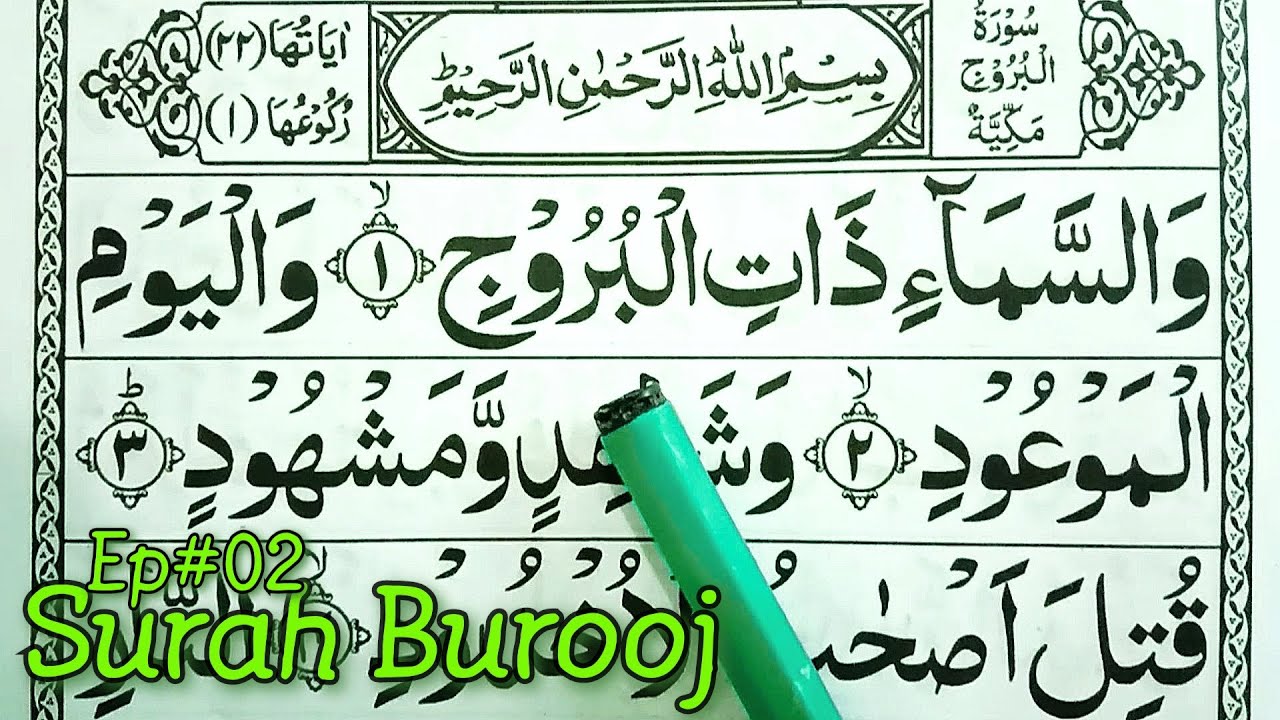 سُوْرَةُ
الْبُرُوْجِ
مَكِّيَّةٌ
بِسْمِ اللّٰهِ الرَّحْمٰنِ الرَّحِيْمِ ؕ
اٰيَاتُهَا (٢٢)
رُكُوْعُهَا (١)
وَالسَّمَآءِ ذَاتِ الْبُرُوْجِ ۙ ١ وَالْيَوْمِ
الْمَوْعُوْدِ ۙ ٢ وَشَاهِدٍ وَّمَشْهُوْدٍ ؕ ٣
قُتِلَ اَصْحٰبُ
Ep#02
Surah Burooj